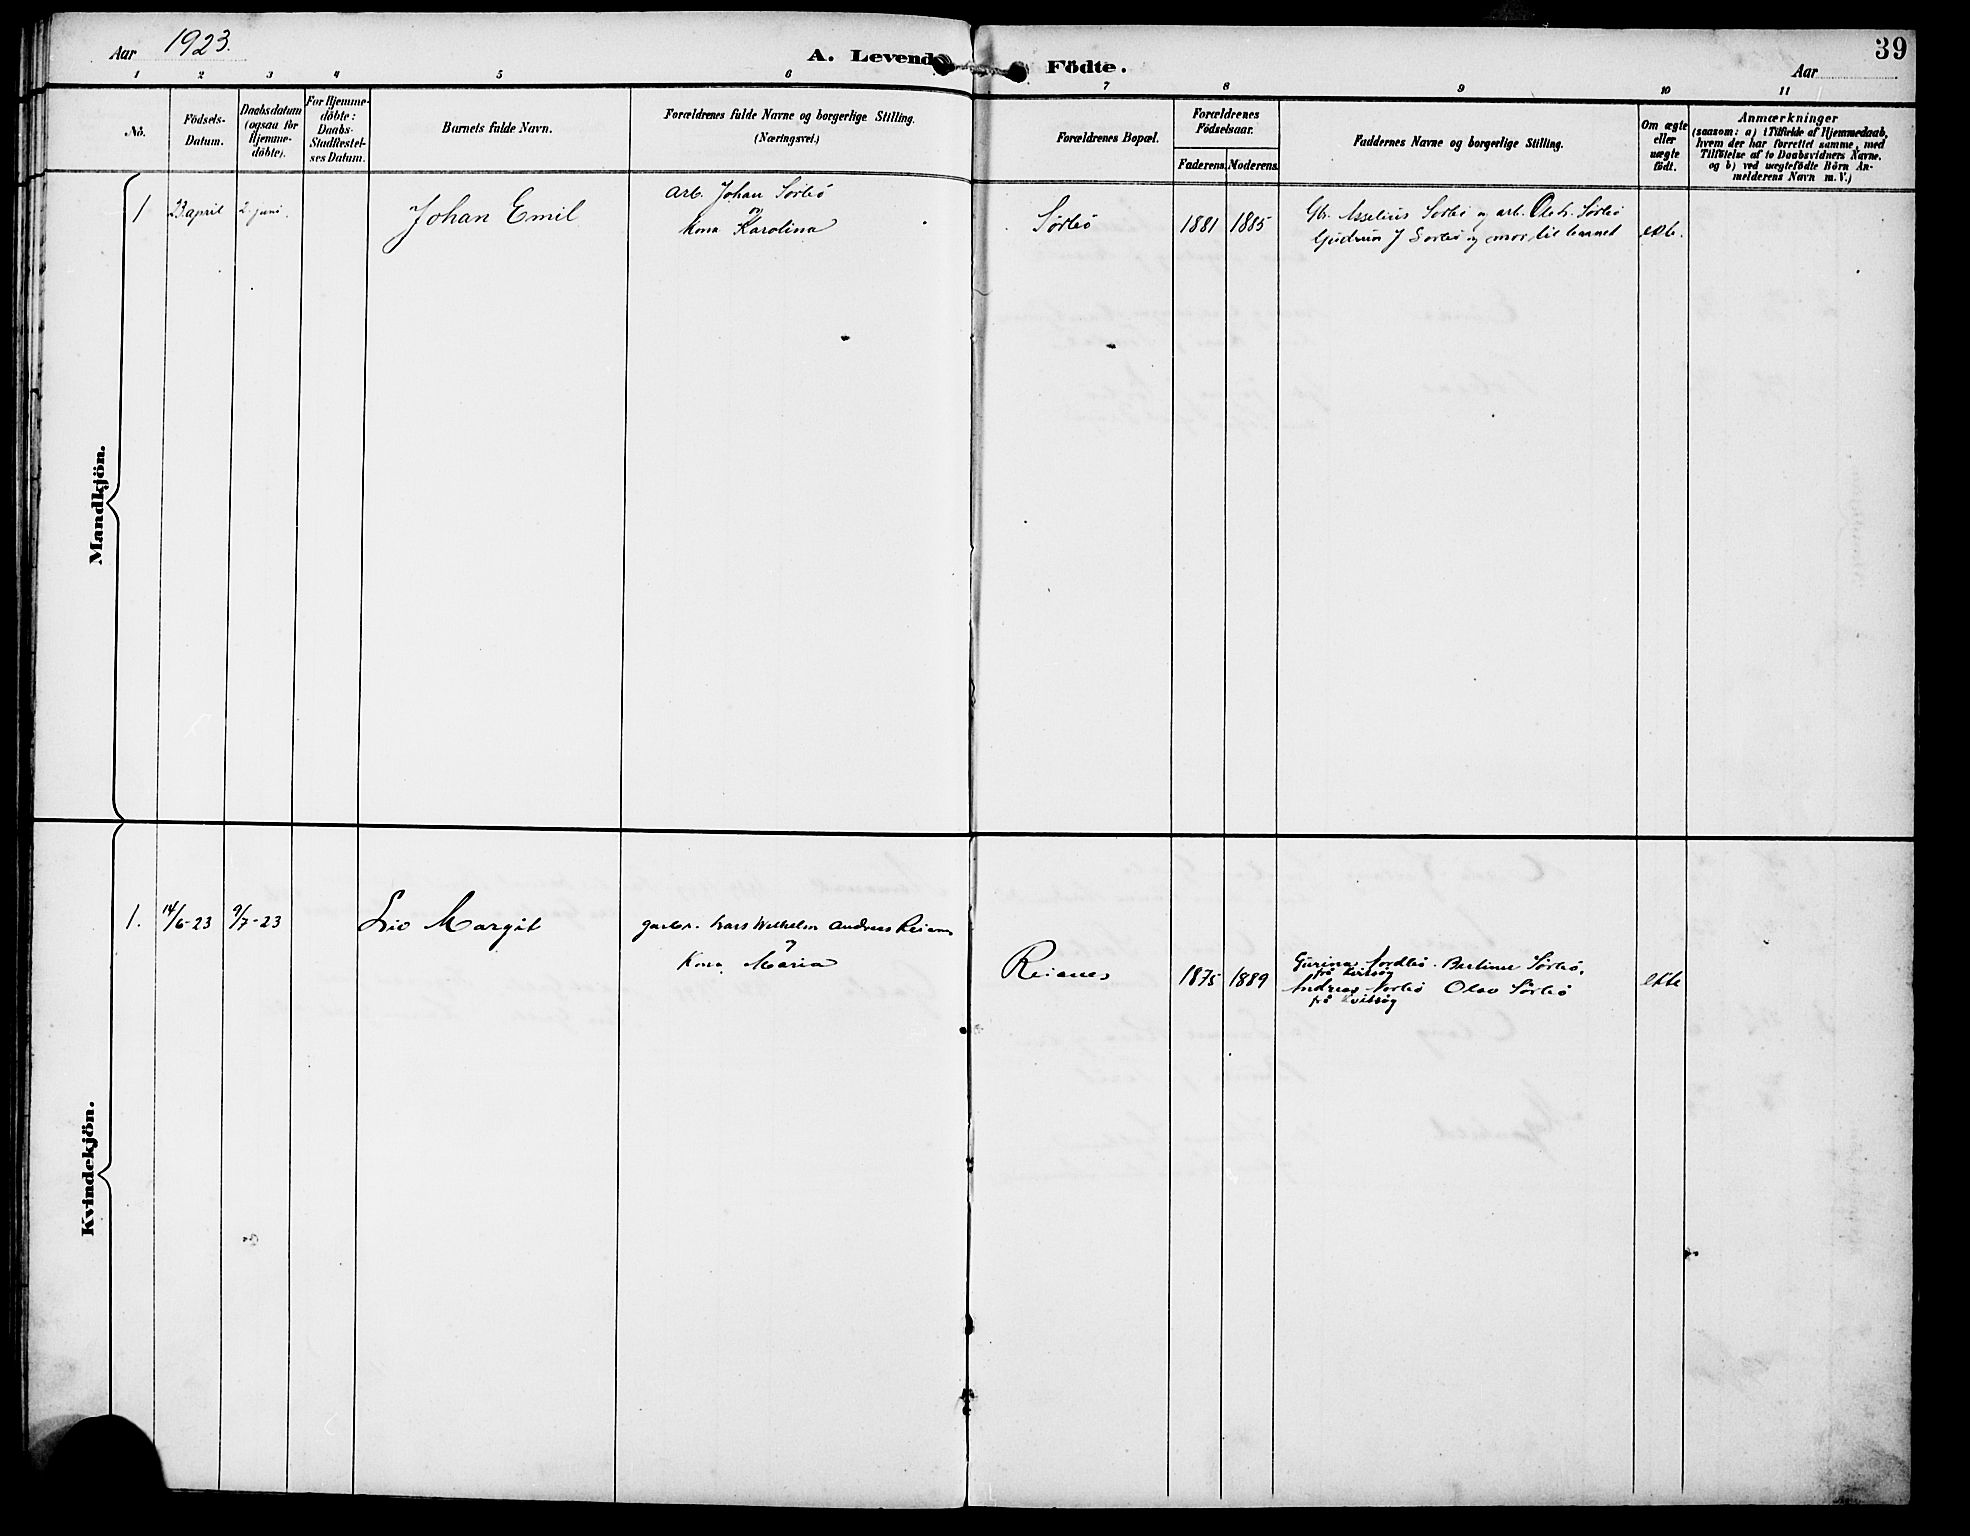 Aar 1923.
A. Levende Födte.
Aar
39
1 2 3 4 5 6 7 8 9 10 11
No.
Födsels-
Datum.
Daabsdatum
(ogsaa for
Hjemme-
döbte).
For Hjemme-
döbte:
Daabs-
Stadfæstel-
ses Datum.
Barnets fulde Navn.
Forældrenes fulde Navne og borgerlige Stilling.
(Næringsvei.)
Forældrenes Bopæl.
Forældrenes
Födselsaar.
Faderens Moderens
Faddernes Navne og borgerlige Stilling.
Om ægte
eller
uægte
född.
Anmærkninger
(saasom: a) i Tilfælde af Hjemmedaab,
hvem der har forrettet samme, med
Tilföielse af to Daabsvidners Navne,
og b) ved uægtefödte Börn An-
melderens Navn m. V.)
Mandkjön.
1 23 april 2 juni. Johan Emil
arb. Johan Sørbø
og
kona Karolina
Sørbø 1881 1885
Gb. Asselius Sørbø og arb. Sørbø
Gudrun J Sørbø og mor til barnet
ekte.
Kvindekjön.
1. 14/6-23 9/7-23 Liv Margit
gardbr. Lars Wilhelm Andreas Reianes
og
kona Maria
Reianes 1875 1889
Gurina Nordbø. Bertine Sørbø.
frå Kvitsøy
Andreas Nordbø Olav Sørbø
frå Kvitsøy
ekte